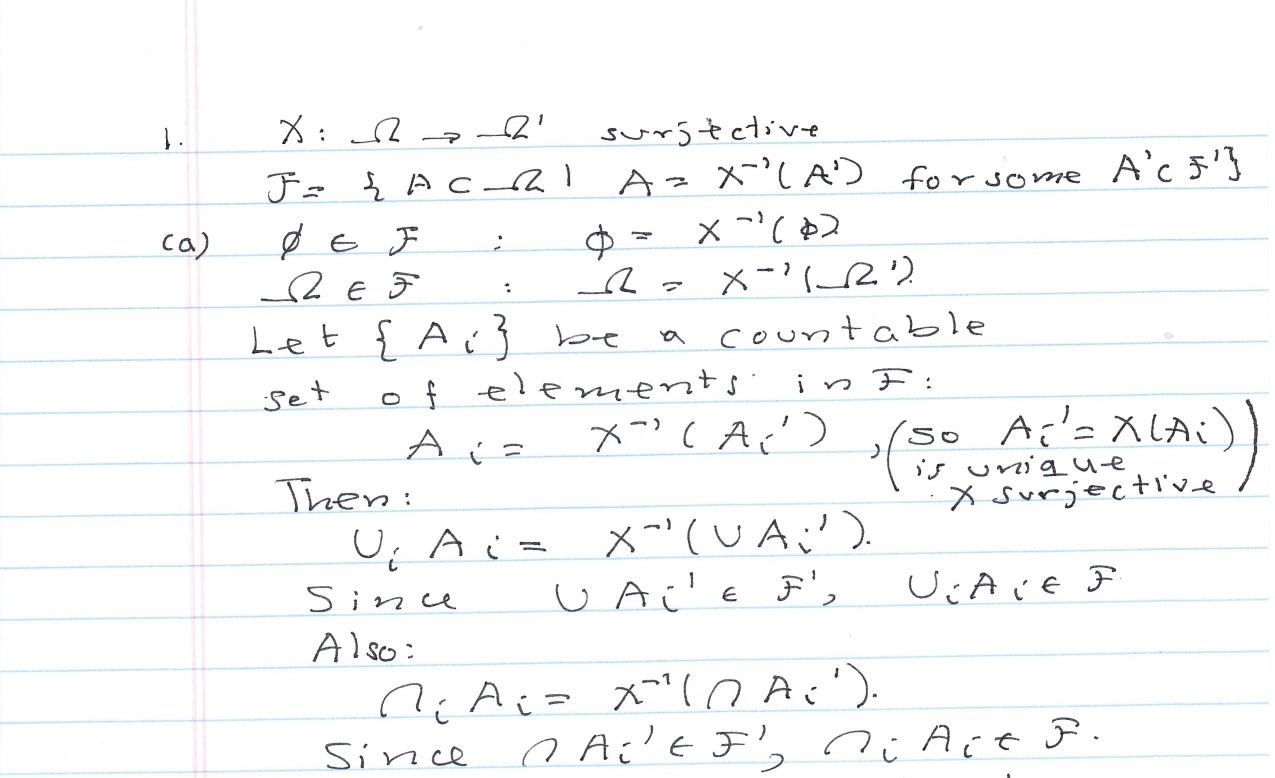 1. X: Ω → Ω' surjective
F = { A ⊂ Ω | A = X⁻¹(A') for some A' ⊂ F'}
(a) ∅ ∈ F : ϕ = X⁻¹(ϕ)
Ω ∈ F : Ω = X⁻¹(Ω').
Let {Aᵢ} be a countable
set of elements in F:
Aᵢ = X⁻¹(Aᵢ'), (so Aᵢ' = X(Aᵢ))
is unique
X surjective
Then:
∪ᵢ Aᵢ = X⁻¹(∪ Aᵢ').
Since ∪ Aᵢ' ∈ F', ∪ᵢ Aᵢ ∈ F
Also:
∩ᵢ Aᵢ = X⁻¹(∩ Aᵢ').
Since ∩ Aᵢ' ∈ F', ∩ᵢ Aᵢ ∈ F.